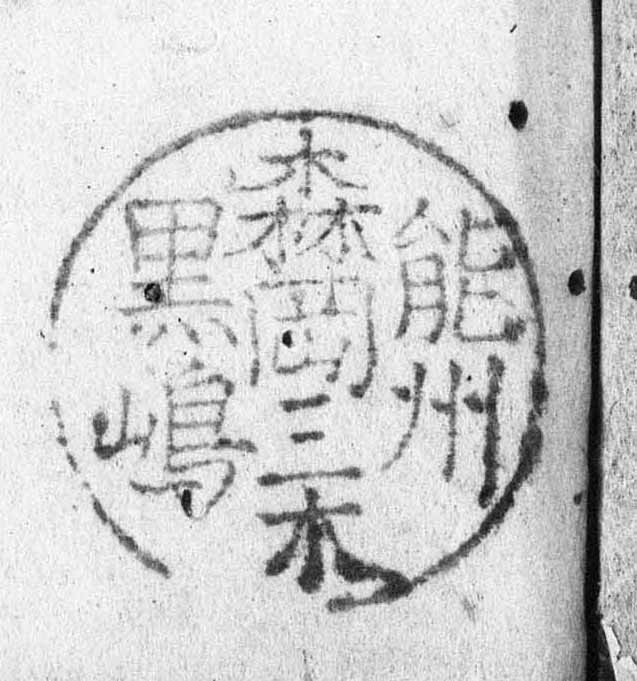 能州
森岡三木
黒嶋